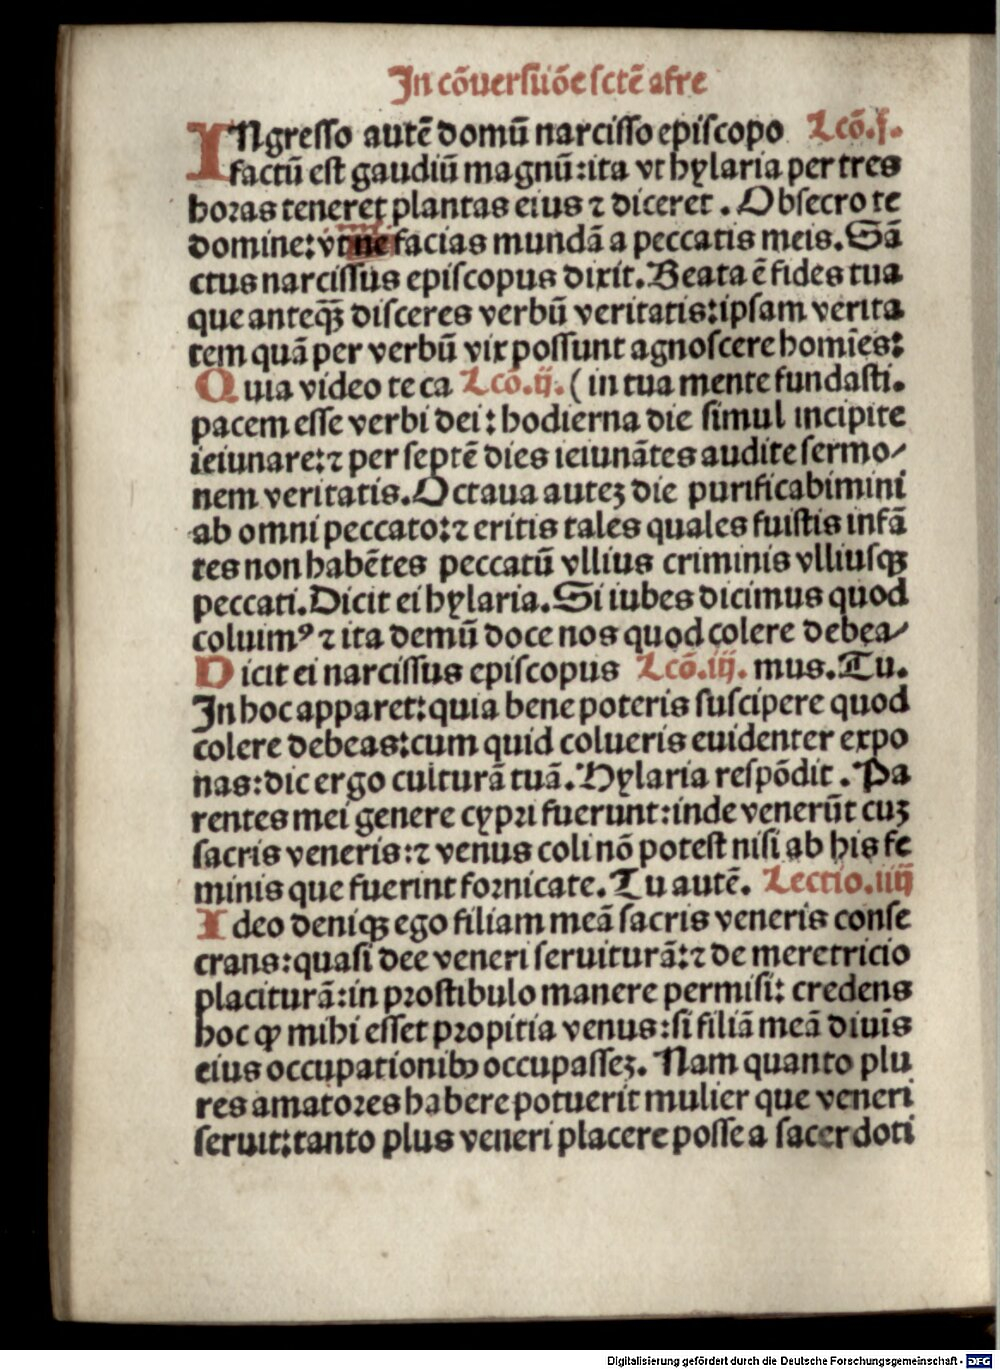 In cōuersiōe sctē afre
INgresso autē domū narcisso episcopo Lcō.i.
factū est gaudiū magnū:ita vt hylaria per tres
horas teneret plantas eius ⁊ diceret. Obsecro te
domine:vt me facias mundā a peccatis meis. Sā
ctus narcissus episcopus dixit. Beata ē fides tua
que anteq̄ꝫ disceres verbū veritatis:ipsam verita
tem quā per verbū vix possunt agnoscere homīes:
Quia video te ca Lcō.ij. (in tua mente fundasti.
pacem esse verbi dei:hodierna die simul incipite
ieiunare:⁊ per septē dies ieiunātes audite sermo⸗
nem veritatis. Octaua auteꝫ die purificabimini
ab omni peccato:⁊ eritis tales quales fuistis infā
tes non habētes peccatū vllius criminis vlliusqꝫ
peccati. Dicit ei hylaria. Si iubes dicimus quod
coluimꝰ ⁊ ita demū doce nos quod colere debea⸗
Dicit ei narcissus episcopus Lcō.iij. mus. Tu.
In hoc apparet:quia bene poteris suscipere quod
colere debeas:cum quid colueris euidenter expo
nas:dic ergo culturā tuā. Hylaria respōdit. Pa
rentes mei genere cypri fuerunt:inde venerūt cuꝫ
sacris veneris:⁊ venus coli nō potest nisi ab his fe
minis que fuerint fornicate. Tu autē. Lectio.iiij
Ideo deniqꝫ ego filiam meā sacris veneris conse
crans:quasi dee veneri seruiturā:⁊ de meretricio
placiturā:in prostibulo manere permisi: credens
hoc ꝙ mihi esset propitia venus:si filiā meā diuīs
eius occupationibꝰ occupasseꝫ. Nam quanto plu
res amatores habere potuerit mulier que veneri
seruit:tanto plus veneri placere posse a sacerdoti
Digitalisierung gefördert durch die Deutsche Forschungsgemeinschaft - DFG